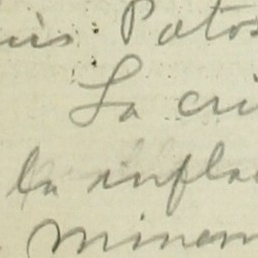 uis Potos
La cri
la infla
minem